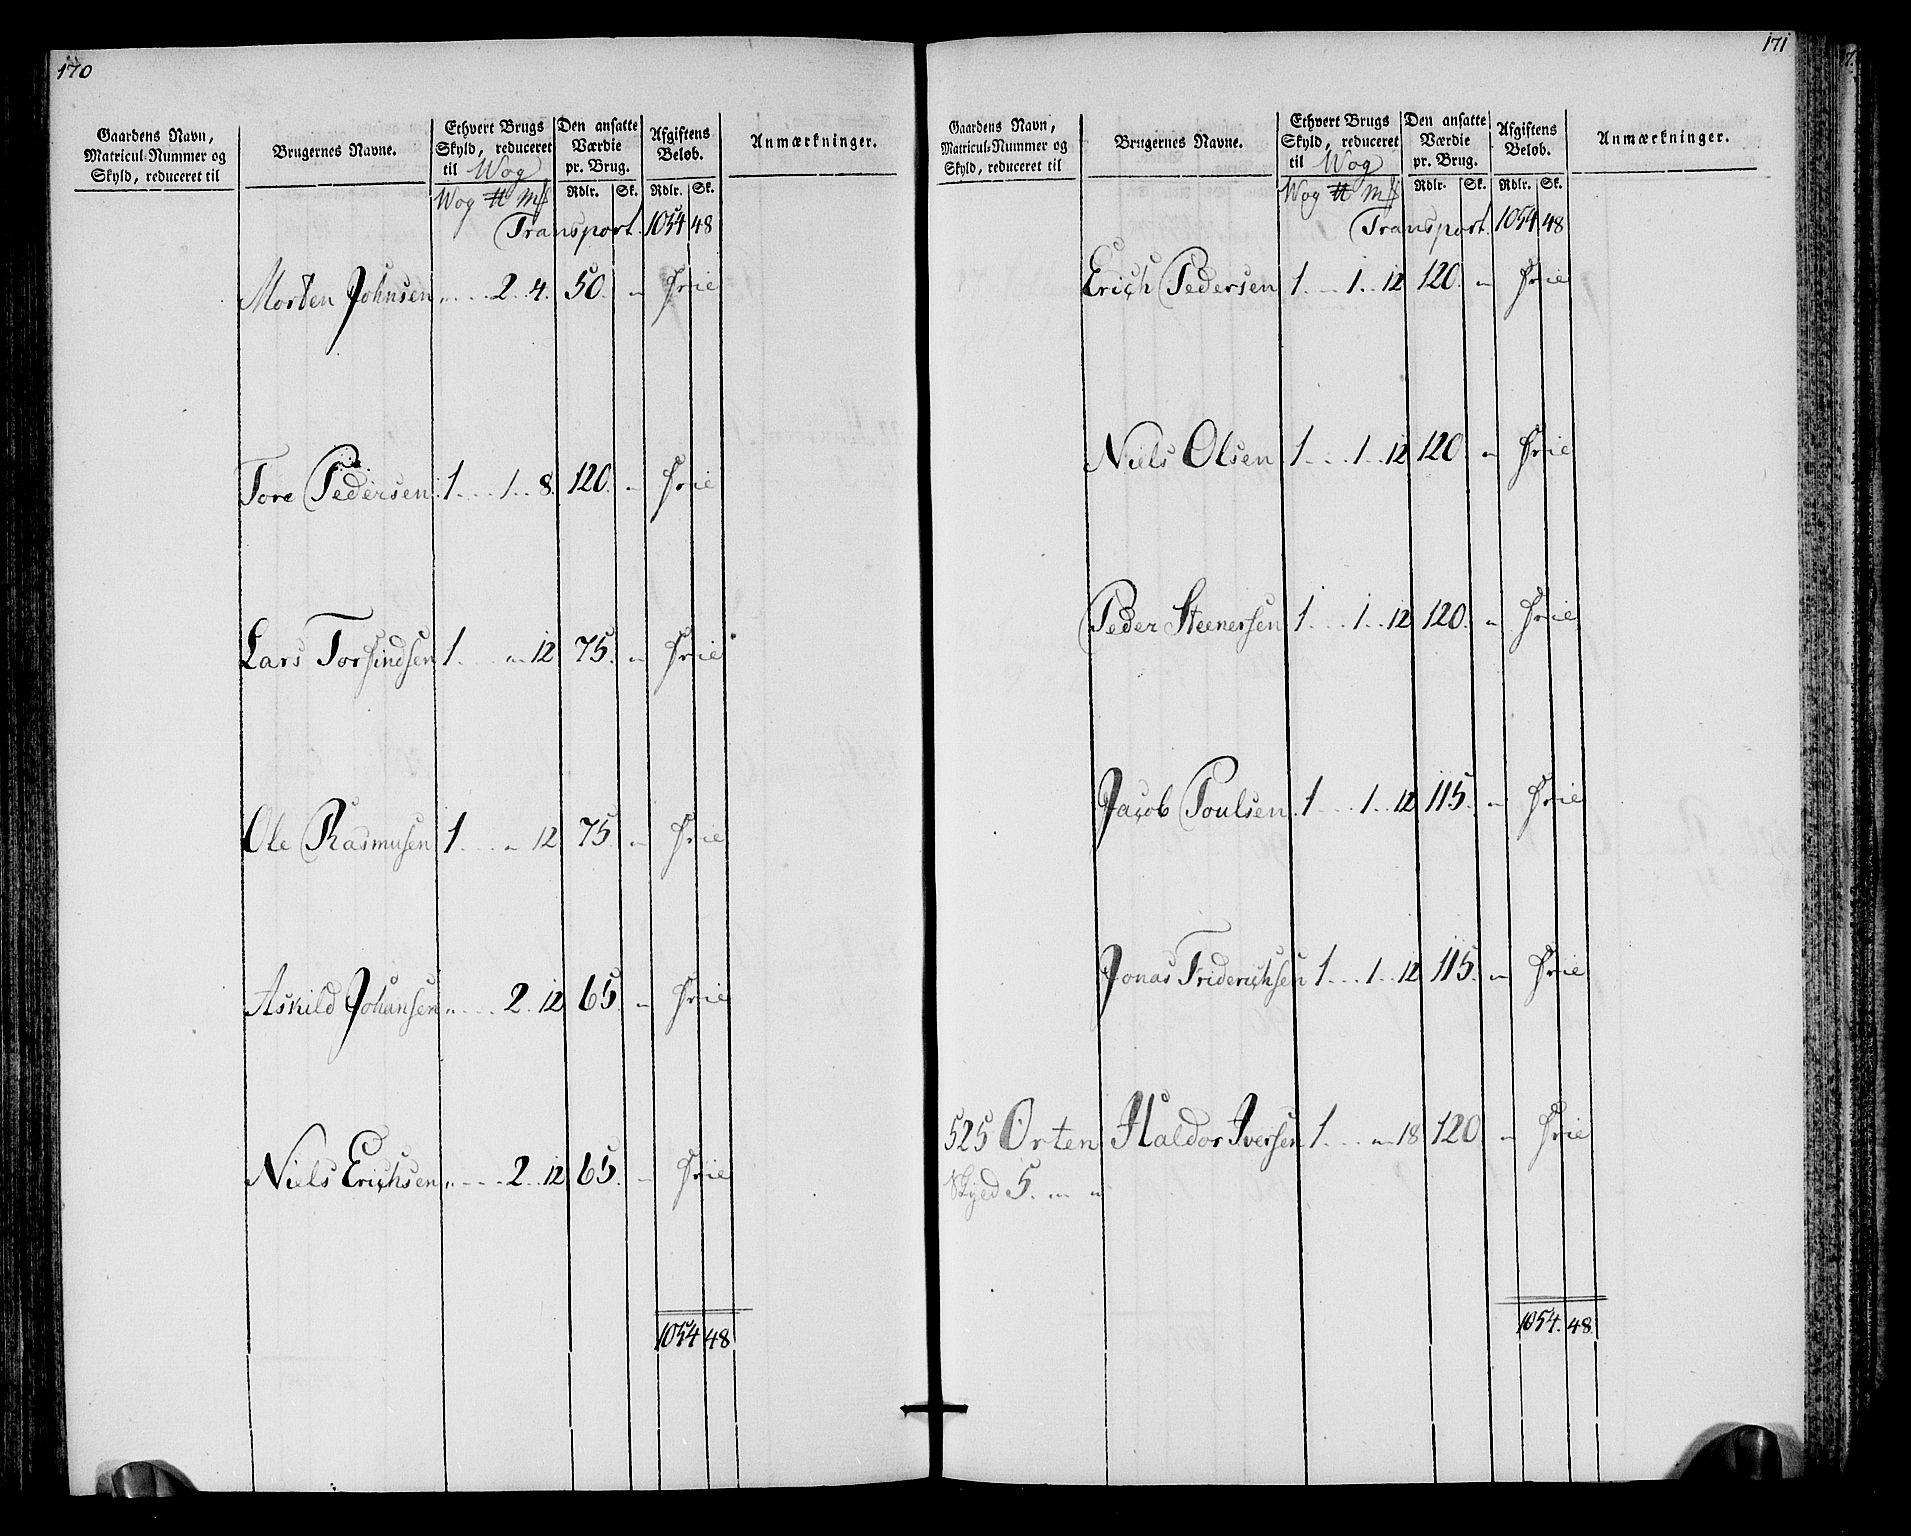 170
Gaardens Navn, Matricul-Nummer og Skyld, reduceret til
Brugernes Navne.
Ethvert Brugs Skyld, reduceret til Wog
Den ansatte Værdie pr. Brug.
Afgiftens Beløb.
Anmærkninger.
Wog ℔ m₰ Rdlr. Sk. Rdlr. Sk.
Transport. 1054 48
Morten Johnsen „ . . . 2 . . 4. 50. „ Frie
Tore Pedersen 1 . . . 1 . . 8. 120. „ Frie
Lars Torsindsen 1 . . . „ 12 75. „ Frie
Ole Rasmusen 1 . . . „ 12 75. „ Frie
Askild Johansen „ . . . 2 . 12 65. „ Frie
Niels Erichsen „ . . . 2 . . 12 65. „ Frie
1054 48
171
Gaardens Navn, Matricul-Nummer og Skyld, reduceret til
Brugernes Navne.
Ethvert Brugs Skyld, reduceret til Wog
Den ansatte Værdie pr. Brug.
Afgiftens Beløb.
Anmærkninger.
Wog ℔ m₰ Rdlr. Sk. Rdlr. Sk.
Transport. 1054 48
Erich Pedersen 1 . . . 1 . . 12 120. „ Frie
Niels Olsen 1 . . . 1 . . 12 120 „ Frie
Peder Steenersen 1 . . . 1 . . 12 120. „ Frie
Jacob Poulsen 1 . . . 1 . . 12 115. „ Frie
Jonas Friderichsen 1 . . . 1 . . 12 115. „ Frie
525 Orten Haldor Iversen 1 . . . „ 18 120 „ Frie
Skyld 5. „ „
1054. 48